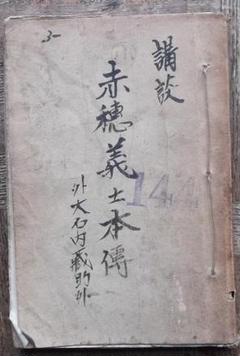 講談
赤穂義士本傳
外大石内蔵助外
3-
14